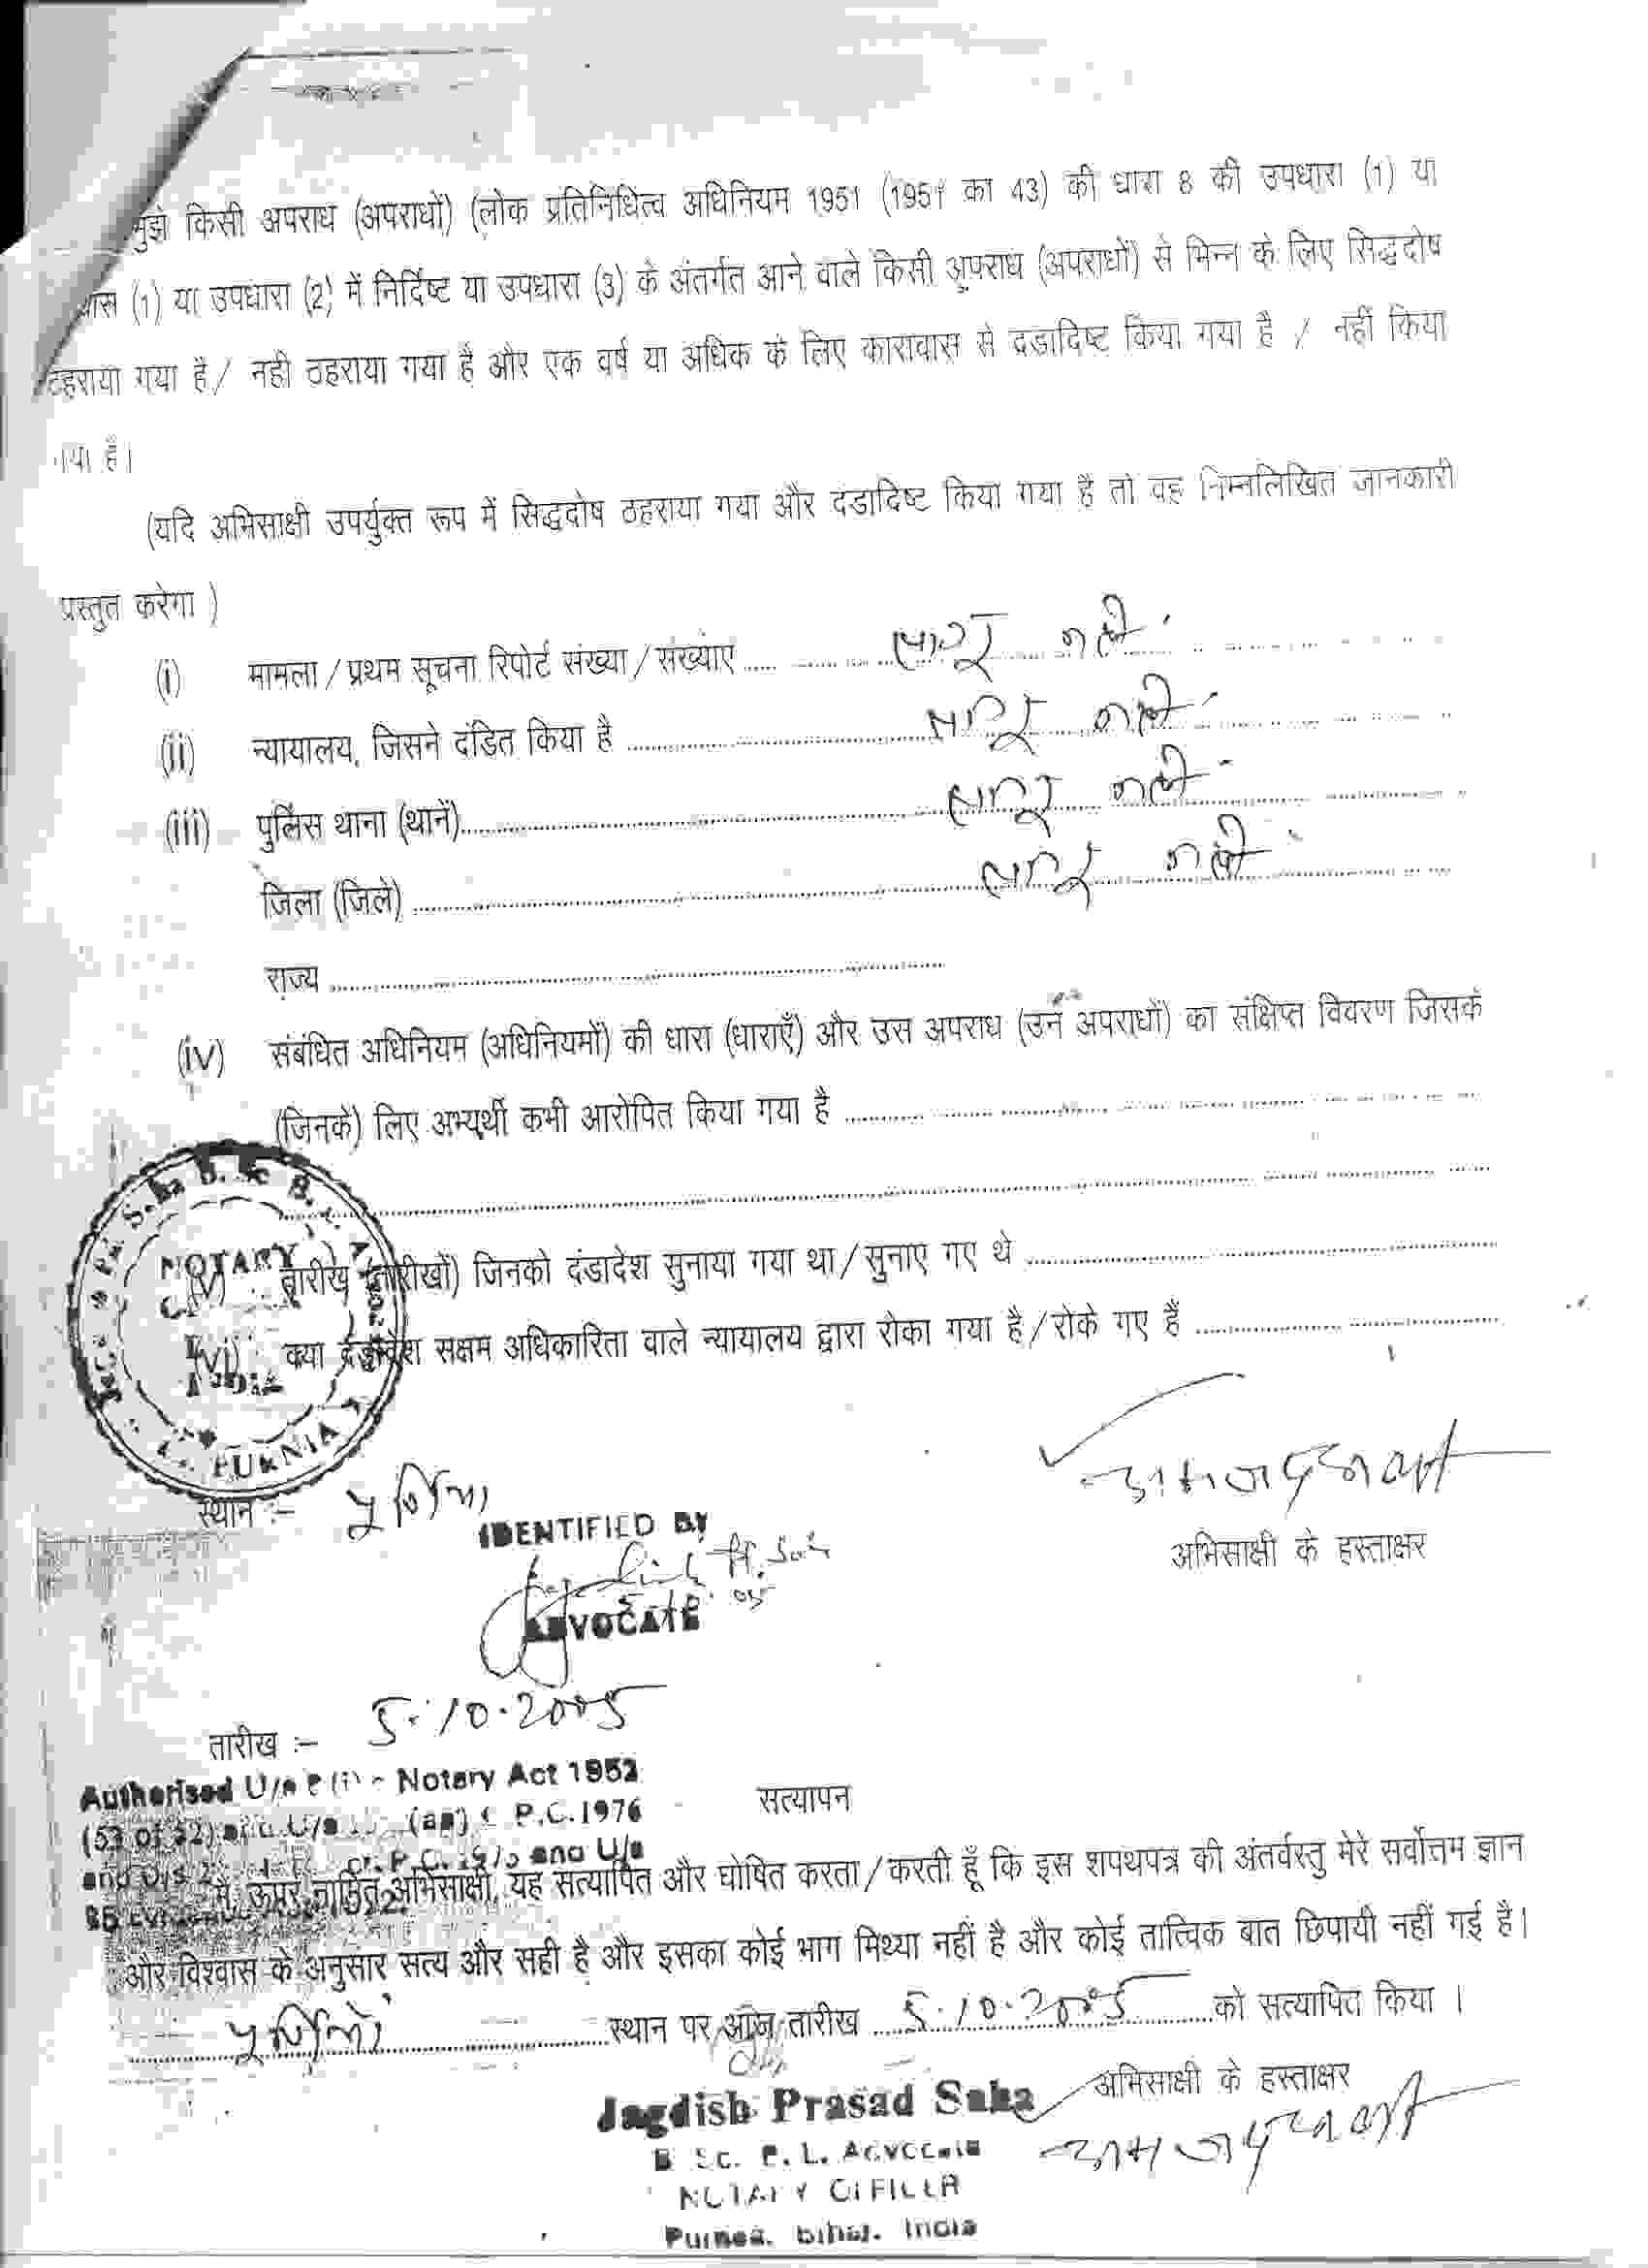 मुझे किसी अपराध (अपराधों) (लोक प्रतिनिधित्व अधिनियम 1951 (1951 का 43) की धारा 8 की उपधारा (1) या
(1) या उपधारा (2) में निर्दिष्ट या उपधारा (3) के अंतर्गत आने वाले किसी अपराध (अपराधों) से भिन्न के लिए सिद्धदोष
ठहराया गया है / नही ठहराया गया है और एक वर्ष या अधिक के लिए कारावास से दंडादिष्ट किया गया है / नहीं किया
गया है।
(यदि अभिसाक्षी उपर्युक्त रूप में सिद्धदोष ठहराया गया और दंडादिष्ट किया गया है तो वह निम्नलिखित जानकारी
प्रस्तुत करेगा )
(i) मामला / प्रथम सूचना रिपोर्ट संख्या / संख्याए ..... लागू नहीं
(ii) न्यायालय, जिसने दंडित किया है ..... लागू नहीं
(iii) पुलिस थाना (थानें)..... लागू नहीं
जिला (जिले) ..... लागू नहीं
राज्य .....
(iv) संबंधित अधिनियम (अधिनियमों) की धारा (धाराएँ) और उस अपराध (उन अपराधों) का संक्षिप्त विवरण जिसके
(जिनके) लिए अभ्यर्थी कभी आरोपित किया गया है .....
(v) तारीख (तारीखों) जिनको दंडादेश सुनाया गया था / सुनाए गए थे .....
(vi) क्या दंडादेश सक्षम अधिकारिता वाले न्यायालय द्वारा रोका गया है / रोके गए हैं .....
NOTARY
PURNIA
स्थान :- पूर्णिया
IDENTIFIED BY
ADVOCATE
अभिसाक्षी के हस्ताक्षर
तारीख :- 5.10.2005
Authorised U/s Notary Act 1952
(53 of 52) U/s P.C. 1976
and U/s and U/s
सत्यापन
मैं, ऊपर नामित अभिसाक्षी, यह सत्यापित और घोषित करता / करती हूँ कि इस शपथपत्र की अंतर्वस्तु मेरे सर्वोत्तम ज्ञान
और विश्वास के अनुसार सत्य और सही है और इसका कोई भाग मिथ्या नहीं है और कोई तात्विक बात छिपायी नहीं गई है।
पूर्णिया ..... स्थान पर आज तारीख ..... 5.10.2005 ..... को सत्यापित किया ।
अभिसाक्षी के हस्ताक्षर
Jagdish Prasad Saha
B Sc. B. L. Advocate
NOTARY
Purnea, Bihar, India